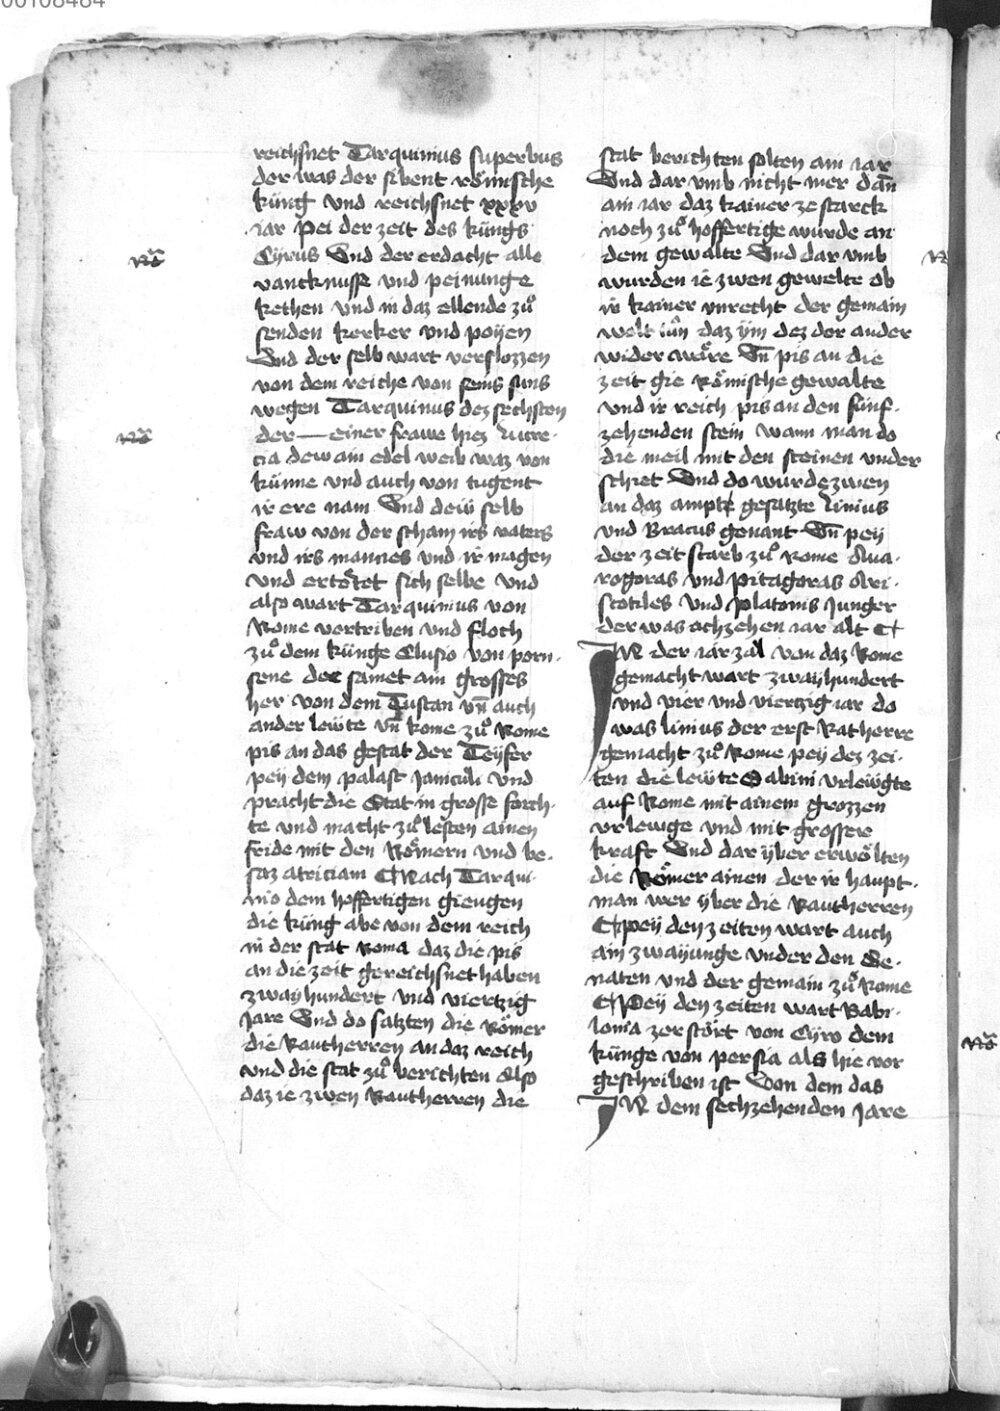 00108484
reichsnet Tarquinius superbus
der was der sibent römische
küng vnd reichsnet xxxv
iar Pei der zeit des küngs
Cyrus Vnd der erdacht alle
vancknusse vnd peinunge
kethen vnd in daz ellende zuͦ
senden kerker vnd poyen
Vnd der selb wart verstozzen
von dem reiche von seins suns
wegen Tarquinus dez sechsten
der — einer frawe hiez Lucre-
cia dew ain edel weib waz von
künne vnd auch von tugent
ir ere nam Vnd dew selb
fraw von der scham irs vaters
vnd irs mannes vnd ir magen
vnd ertötet sich selbe vnd
also wart Tarquinius von
Rome vertriben vnd floch
zuͦ dem künge Clusio von porn-
sene der samet ain grosses
her von dem Tustan vn̄ auch
ander lewte vn̄ kome zuͦ Rome
pis an das gestat der Teyfer
pey dem palast Janiculi vnd
pracht die Stat in grosse forch-
te vnd macht zuͦ lesten ainen
fride mit den Römern vnd be-
saz atriciam Nach Tarqui-
nio dem hoffertigen giengen
die küng abe von dem reich
in der stat Roma daz die pis
an die zeit gereichsnet haben
zwayhundert vnd viertzig
Jare Vnd do satzten die Römer
die Rautherren an daz reich
vnd die stat zuͦ berichten Also
daz ie zwen Rautherren die
stat berichten solten ain iar
Vnd dar vmb nicht mer dan̄
ain iar daz kainer ze starck
noch zuͦ hoffertige wurde an
dem gewalte Vnd dar vmb
wurden ie zwen gewelte ob
ir kainer vnrecht der gemain
wolt tuͦn daz ym dez der ander
wider wäre Vn̄ pis an die
zeit gie Römische gewalte
vnd ir reich pis an den fünf-
zehenden stein wann man do
die meil mit den steinen vnder
schiet Vnd do wurde zwen
an daz ampte gesatzte Linius
vnd Bracus genant Vn̄ pey
der zeit starb zuͦ Rome Ana-
rogoras vnd pitagoras Ari-
stotiles vnd platonis Junger
der was achzehen iar alt
IN der iar zal von daz Rome
gemacht wart zwayhundert
vnd vier vnd viertzig iar do
was linius der erst Ratherre
gemacht zuͦ Rome pey dez zei-
ten die lewte Sabini vrlewgte
auf Rome mit ainem grozzen
vrlewge vnd mit grosser
kraft Vnd dar yber erwölten
die Römer ainen der ir haupt-
man wer yber die Rautherren
pey den zeiten wart auch
ain zwayunge vnder den Se-
naten vnd der gemain zuͦ Rome
Pey den zeiten wart Babi-
lonia zerstört von Cyro dem
künge von persia als hie vor
geschriben ist Von dem das
IN dem sechzehenden Jare